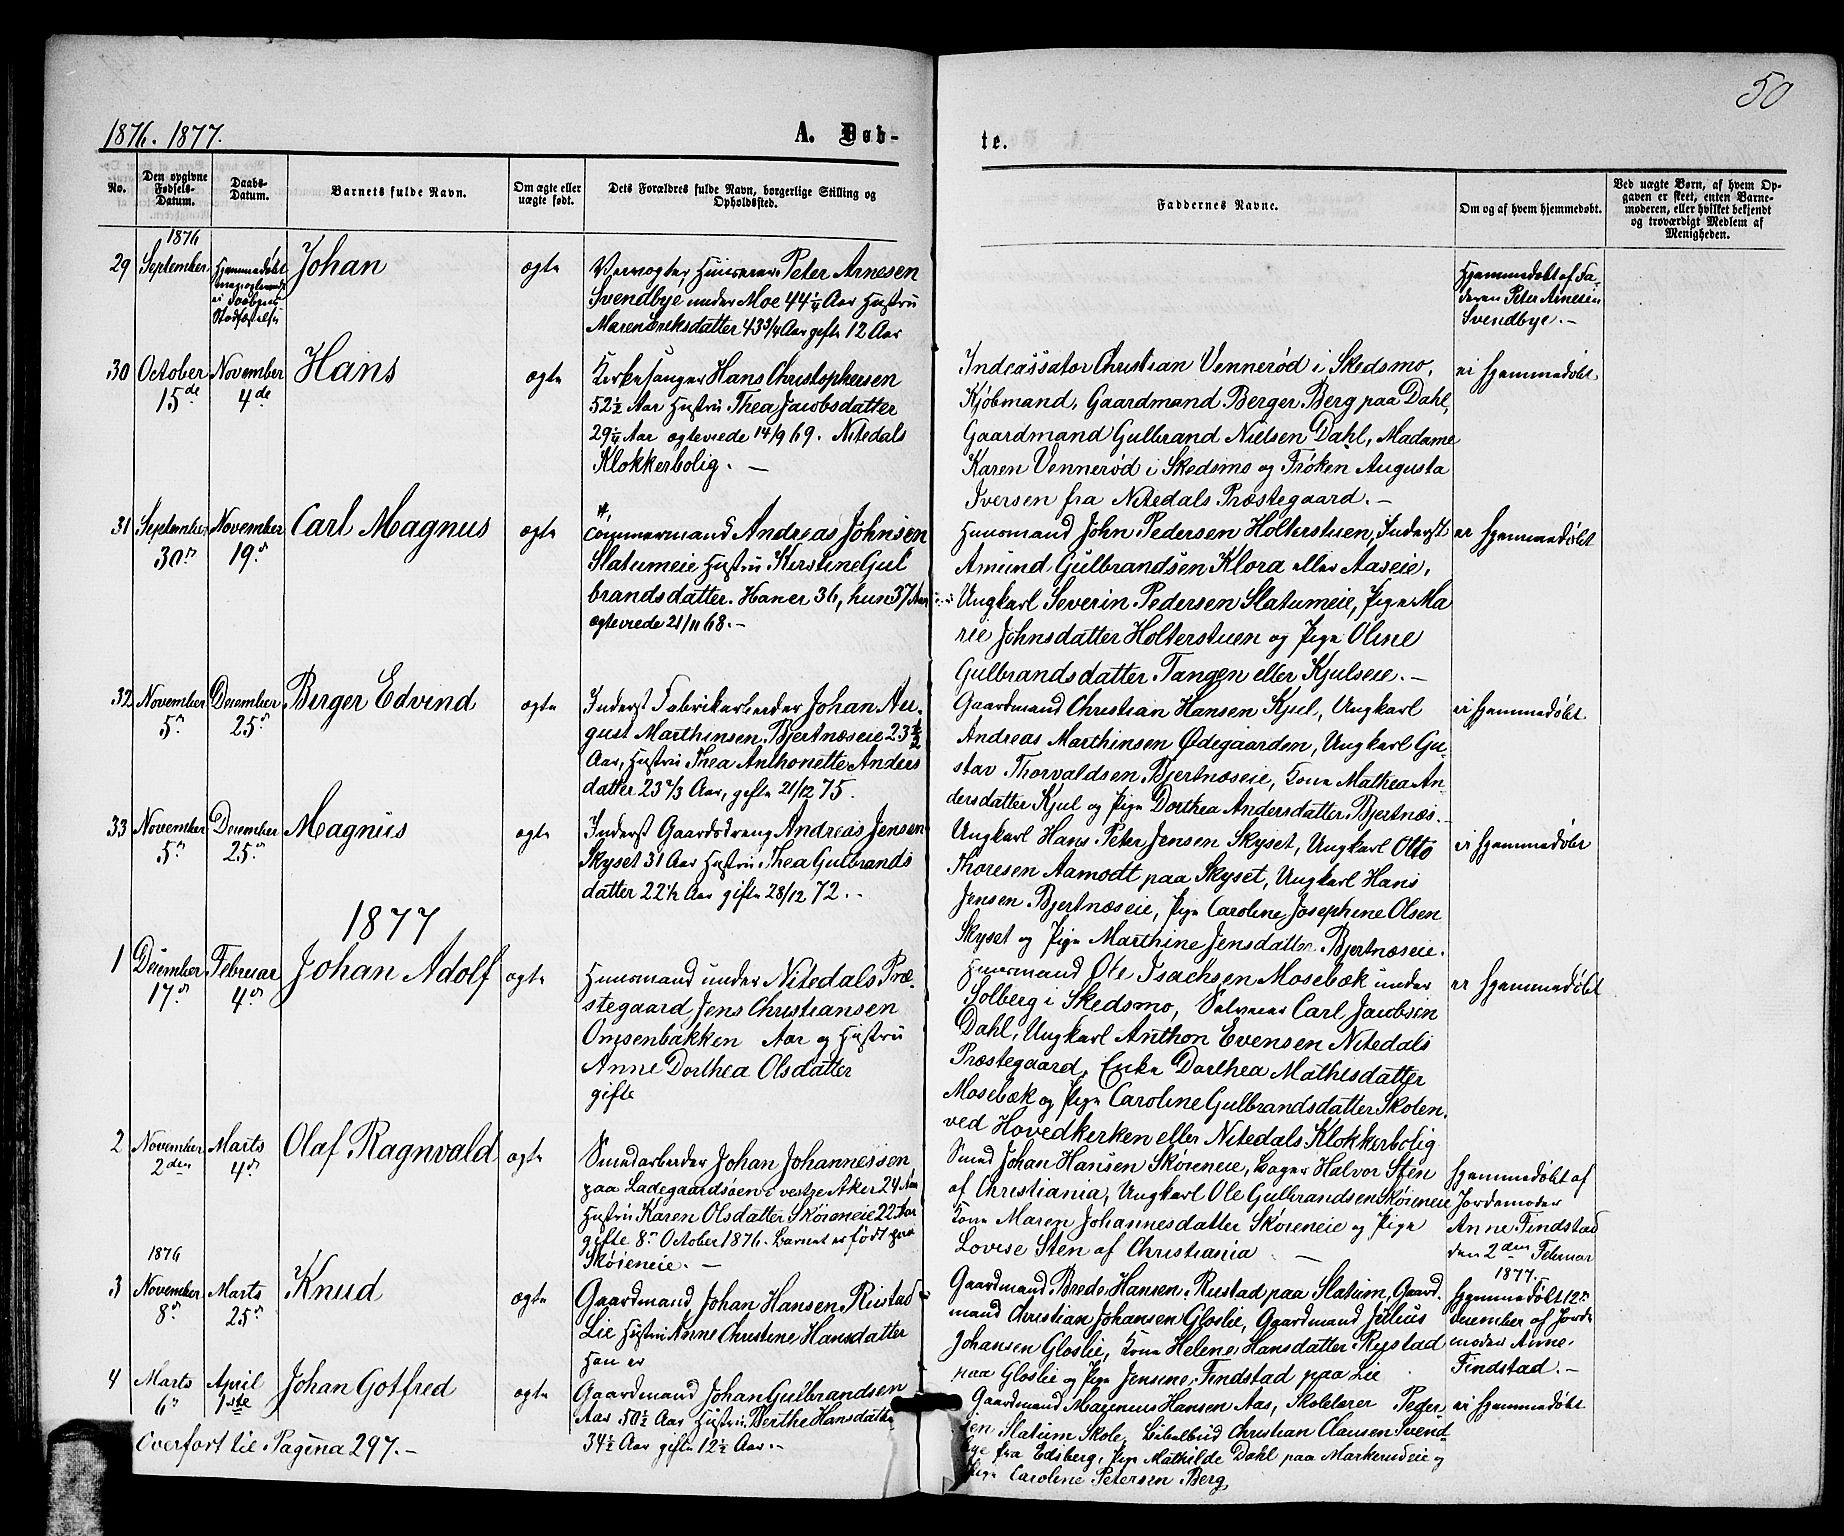 50
1876. 1877.
A. Døb-
te.
No.
Den opgivne Fødsels-Datum.
Daabs-Datum.
Barnets fulde Navn.
Om ægte eller uægte født.
Dets Forældres fulde Navn, borgerlige Stilling og Opholdssted.
Faddernes Navne.
Om og af hvem hjemmedøbt.
Ved uægte Børn, af hvem Op-
gaven er skeet, enten Barne-
moderen, eller hvilket bekjendt
og troværdigt Medlem af
Menigheden.
1876
29 September
Hjemmedøbt
Stadfæstelse
Johan
ægte
Peter Arnesen
Svendbye under Moe 44 1/4 Aar Hustru
Maren Eriksdatter 43 3/4 Aar gifte 12 Aar
Hjemmedøbt af Fa-
deren Peter Arnesen
Svendbye. -
30 October 15de
November 4de
Hans
ægte
Kirkesanger Hans Christophersen
52 1/2 Aar Hustru Thea Jacobsdatter
29 1/4 Aar ægteviede 14/9 69. Nitedals
Klokkerbolig. -
Indcassator Christian Vennerød i Skedsmo,
Kjøbmand, Gaardmand Berger Berg paa Dahl,
Gaardmand Gulbrand Nielsen Dahl, Madame
Karen Vennerød i Skedsmo og Frøken Augusta
Iversen fra Nitedals Præstegaard. -
ei hjemmedøbt
31 September 30n
November 19n
Carl Magnus
ægte
Tømmermand Andreas Johnsen
Slatumeie Hustru Kirstine Gul
brandsdatter. Han er 36, hun 37 Aar
ægteviede 21/11 68. -
Huusmand John Pedersen Holterstuen, Inderst
Amund Gulbrandsen Klora eller Aaseie,
Ungkarl Severin Pedersen Slatumeie, Pige Ma
rie Johnsdatter Holterstuen og Pige Oline
Gulbrandsdatter Tangen eller Kjulseie. -
ei hjemmedøbt
32 November 5n
December 25n
Birger Edvind
ægte
Inderst Fabrikarbeider Johan Au-
gust Marthinsen Bjertnæseie 23 1/2
Aar, Hustru Thea Anthonette Anders
datter 23 2/3 Aar, gifte 21/12 75.
Gaardmand Christian Hansen Kjul, Ungkarl
Andreas Marthinsen Ødegaarden, Ungkarl Gu-
stav Thorvaldsen Bjertnæseie, Kone Mathea An-
dersdatter Kjul og Pige Dorthea Andersdatter Bjertnæs. -
ei hjemmedøbt
33 November 5n
December 25n
Magnus
ægte
Inderst Gaardsdreng Andreas Jensen
Skyset 31 Aar Hustru Thea Gulbrands
datter 22 1/2 Aar gifte 28/12 72. -
Ungkarl Hans Peter Jensen Skyset, Ungkarl Otto
Thoresen Aamodt paa Skyset, Ungkarl Hans
Jensen Bjertnæseie, Pige Caroline Josephine Olsen
Skyset og Pige Marthine Jensdatter Bjertnæseie.
ei hjemmedøbt
1877
1 December 17n
Februar 4n
Johan Adolf
ægte
Huusmand under Nitedals Præ-
stegaard Jens Christiansen
Onsenbakken Aar og Hustru
Anne Dorthea Olsdatter
gifte
Huusmand Ole Isachsen Mosebæk under
Solberg i Skedsmo, Selveier Carl Jacobsen
Dahl, Ungkarl Anthon Evensen Nitedals
Præstegaard, Enke Dorthea Mathisdatter
Mosebæk og Pige Caroline Gulbrandsdatter Skolen
ved Hovedkirken eller Nitedals Klokkerbolig
ei hjemmedøbt
2 November 2den
Marts 4n
Olaf Ragnvald
ægte
Smedarbeider Johan Johannessen
paa Ladegaardsøen i vestre Aker 24 Aar
Hustru Karen Olsdatter Skøieneie 22 Aar
gifte 8n October 1876. Barnet er født paa
Skøieneie. -
Smed Johan Hansen Skøieneie, Bager Halvor Sten
af Christiania, Ungkarl Ole Gulbrandsen Skøieneie
Kone Maren Johannesdatter Skøieneie og Pige
Lovise Sten af Christiania -
Hjemmedøbt af
Jordemoder
Anne Findstad
den 2den Februar
1877.
1876
3 November 8n
Marts 25n
Knud
ægte
Gaardmand Johan Hansen Rustad
Lie Hustru Anne Christine Hansdatter
Han er
Gaardmand Brede Hansen Rustad paa Slatum, Gaard-
mand Christian Johansen Gloslie, Gaardmand Julius
Johansen Gloslie, Kone Helene Hansdatter Rustad
paa Gloslie og Pige Jensine Findstad paa Lie
Hjemmedøbt 12n
December af Jorde
moder Anne
Findstad. -
4 Marts 6n
April 1ste
Johan Gotfred
ægte
Gaardmand Johan Gulbrandsen
Aas 50 1/2 Aar Hustru Berthe Hansdatter
34 1/2 Aar gifte 12 1/2 Aar. -
Gaardmand Magnus Hansen Aas, Skolelærer Peder
sen Slatum Skole, Christian Clausen Svend
bye fra Edsberg, Pige Mathilde Dahl paa Markerudeie og
Pige Caroline Petersen Berg
ei hjemmedøbt
Overført til Pagina 297. -